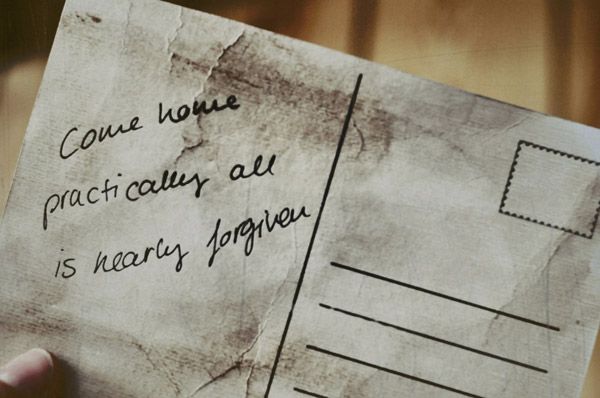 Come home
practically all
is nearly forgiven